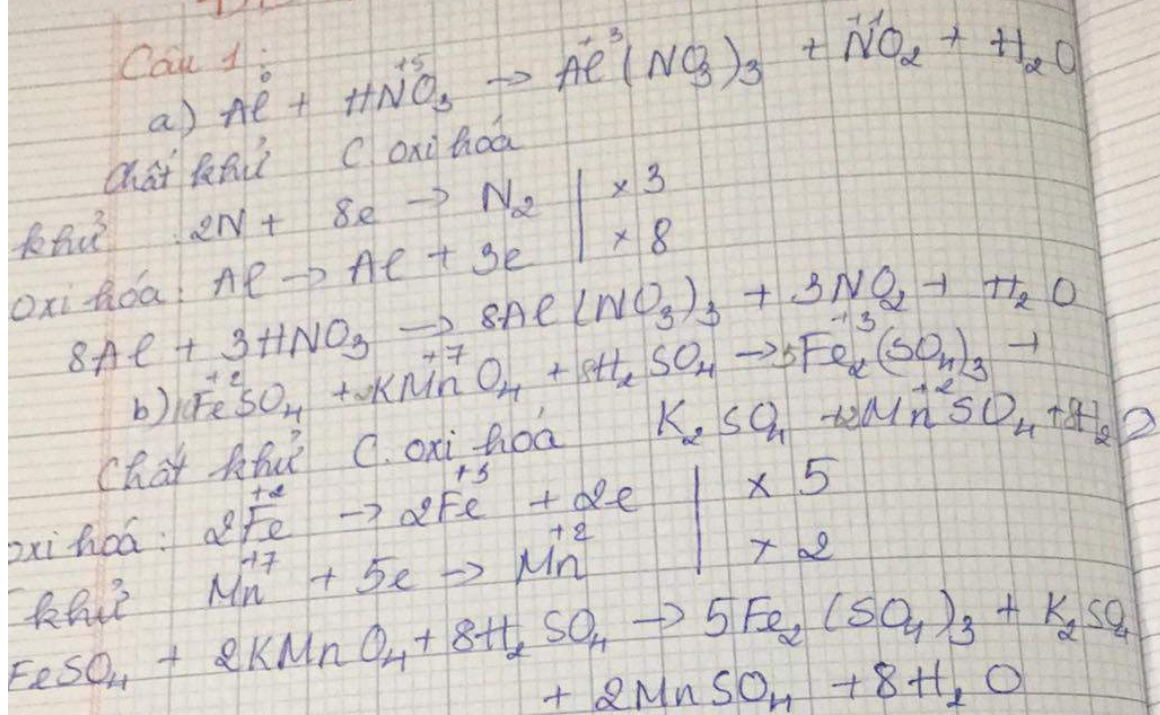 Câu 1:
a) Al⁰ + HN⁺⁵O₃ → Al⁺³(NO₃)₃ + N⁺¹O₂ + H₂O
Chất khử C. oxi hoá
khử 2N + 8e → N₂ | × 3
oxi hóa: Al → Al + 3e | × 8
8Al + 3HNO₃ → 8Al(NO₃)₃ + 3NO₂ + H₂O
b) Fe⁺²SO₄ + KMn⁺⁷O₄ + 8H₂SO₄ → 5Fe₂⁺³(SO₄)₃ +
K₂SO₄ + 2Mn⁺²SO₄ + 8H₂O
Chất khử C. oxi hoá
oxi hoá: 2Fe⁺² → 2Fe⁺³ + 2e | × 5
khử Mn⁺⁷ + 5e → Mn⁺² | × 2
FeSO₄ + 2KMnO₄ + 8H₂SO₄ → 5Fe₂(SO₄)₃ + K₂SO₄
+ 2MnSO₄ + 8H₂O